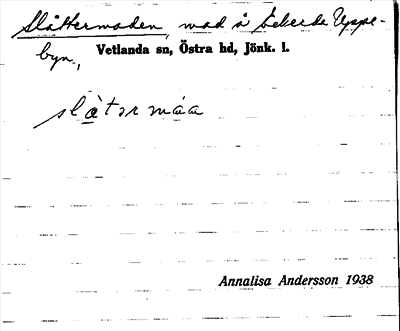 Slåttermaden, mad å Ekerda Uppe-
byn, Vetlanda sn, Östra hd, Jönk. l.
slåtərmáa
Annalisa Andersson 1938